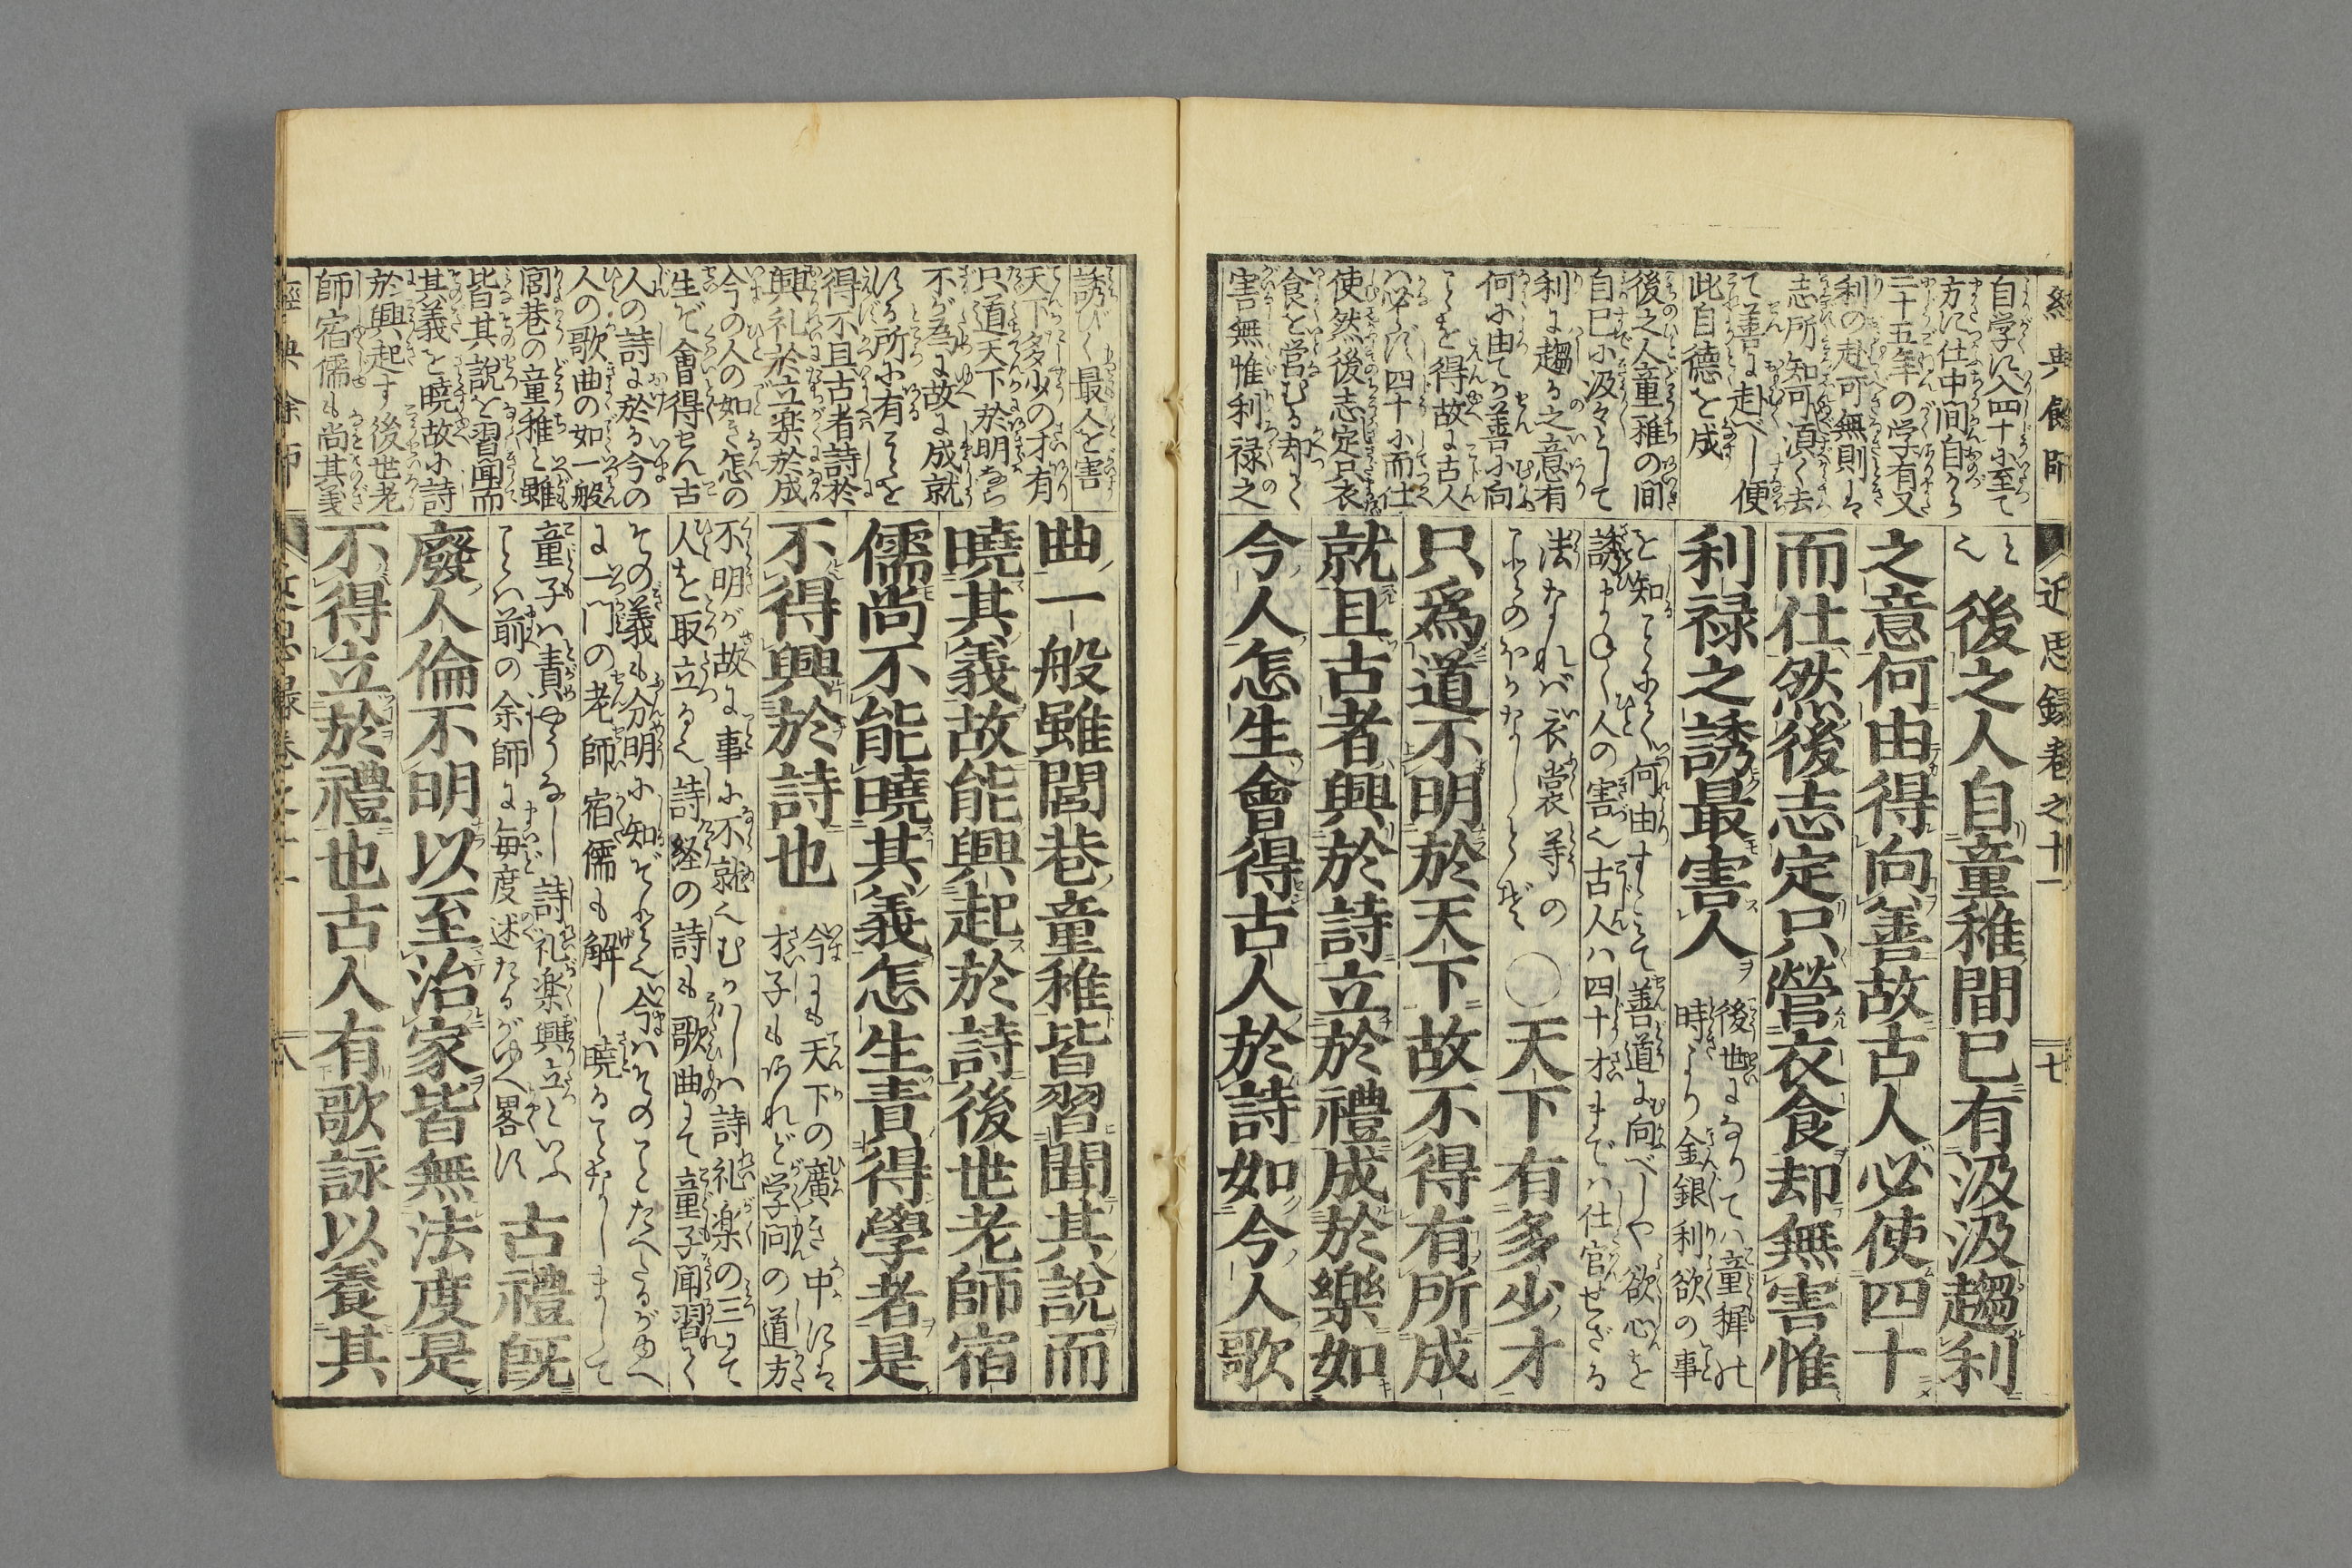 経典餘師
近思録巻之十一
七
自学に入四十に至て
方に仕中間自から
二十五年の学有又
利の赴可無則は
志所知可須く去
て善に赴べし便
此自徳を成
後之人童稚の間
自已に汲々として
利に趨る之意有
何に由てか善に向
ことを得故に古人
ハ必ず四十にして仕
使然後志定只衣
食を営むる却て
害無惟利禄之
後之人自童稚間已有汲汲趨利
之意何由得向善故古人必使四十
而仕然後志定只營衣食却無害惟
利禄之誘最害人
後世になりてハ童穉の
時より金銀利欲の事
を知ことなく何由すこして善道に向べしや欲心を
誘ほく人の害也古人ハ四十才までハ仕官せざる
法なれバ衣裳等の
〇天下有多少才
只爲道不明於天下故不得有所成
就且古者興於詩立於禮成於樂如
今人怎生會得古人於詩如今人歌
誘びく最人を害
天下多少の才有
只道天下於明なら
不が為に故に成就
する所に有ことを
得不且古者詩於
興礼於立楽於成
今の人の如き怎の
生ぞ會得せん古
人の詩に於る今の
人の歌曲の如一般
閭巷の童稚と雖
皆其説を習聞而
其義を曉故に詩
於興起す後世老
師宿儒も尚其義
曲一般雖閭巷童稚皆習聞其說而
曉其義故能興起於詩後世老師宿
儒尚不能曉其義怎生責得學者是
不得興於詩也
今にも天下の廣き中には
才子もあれど学問の道方
不明が故に事に不就也むかしハ詩礼楽の三にて
人を取立る也詩経の詩も歌曲にて童子聞習て
その義も分明に知ぞかし也今ハそのことたへたるがゆへ
に一門の老師宿儒も解し曉ることなしまして
童子ハ責ゆうなし詩礼楽興立といふ
ことハ前の余師に毎度述たるがゆへ畧す
古禮既
廢人倫不明以至治家皆無法度是
不得立於禮也古人有歌詠以養其
經典餘師
近思録巻之十一
八